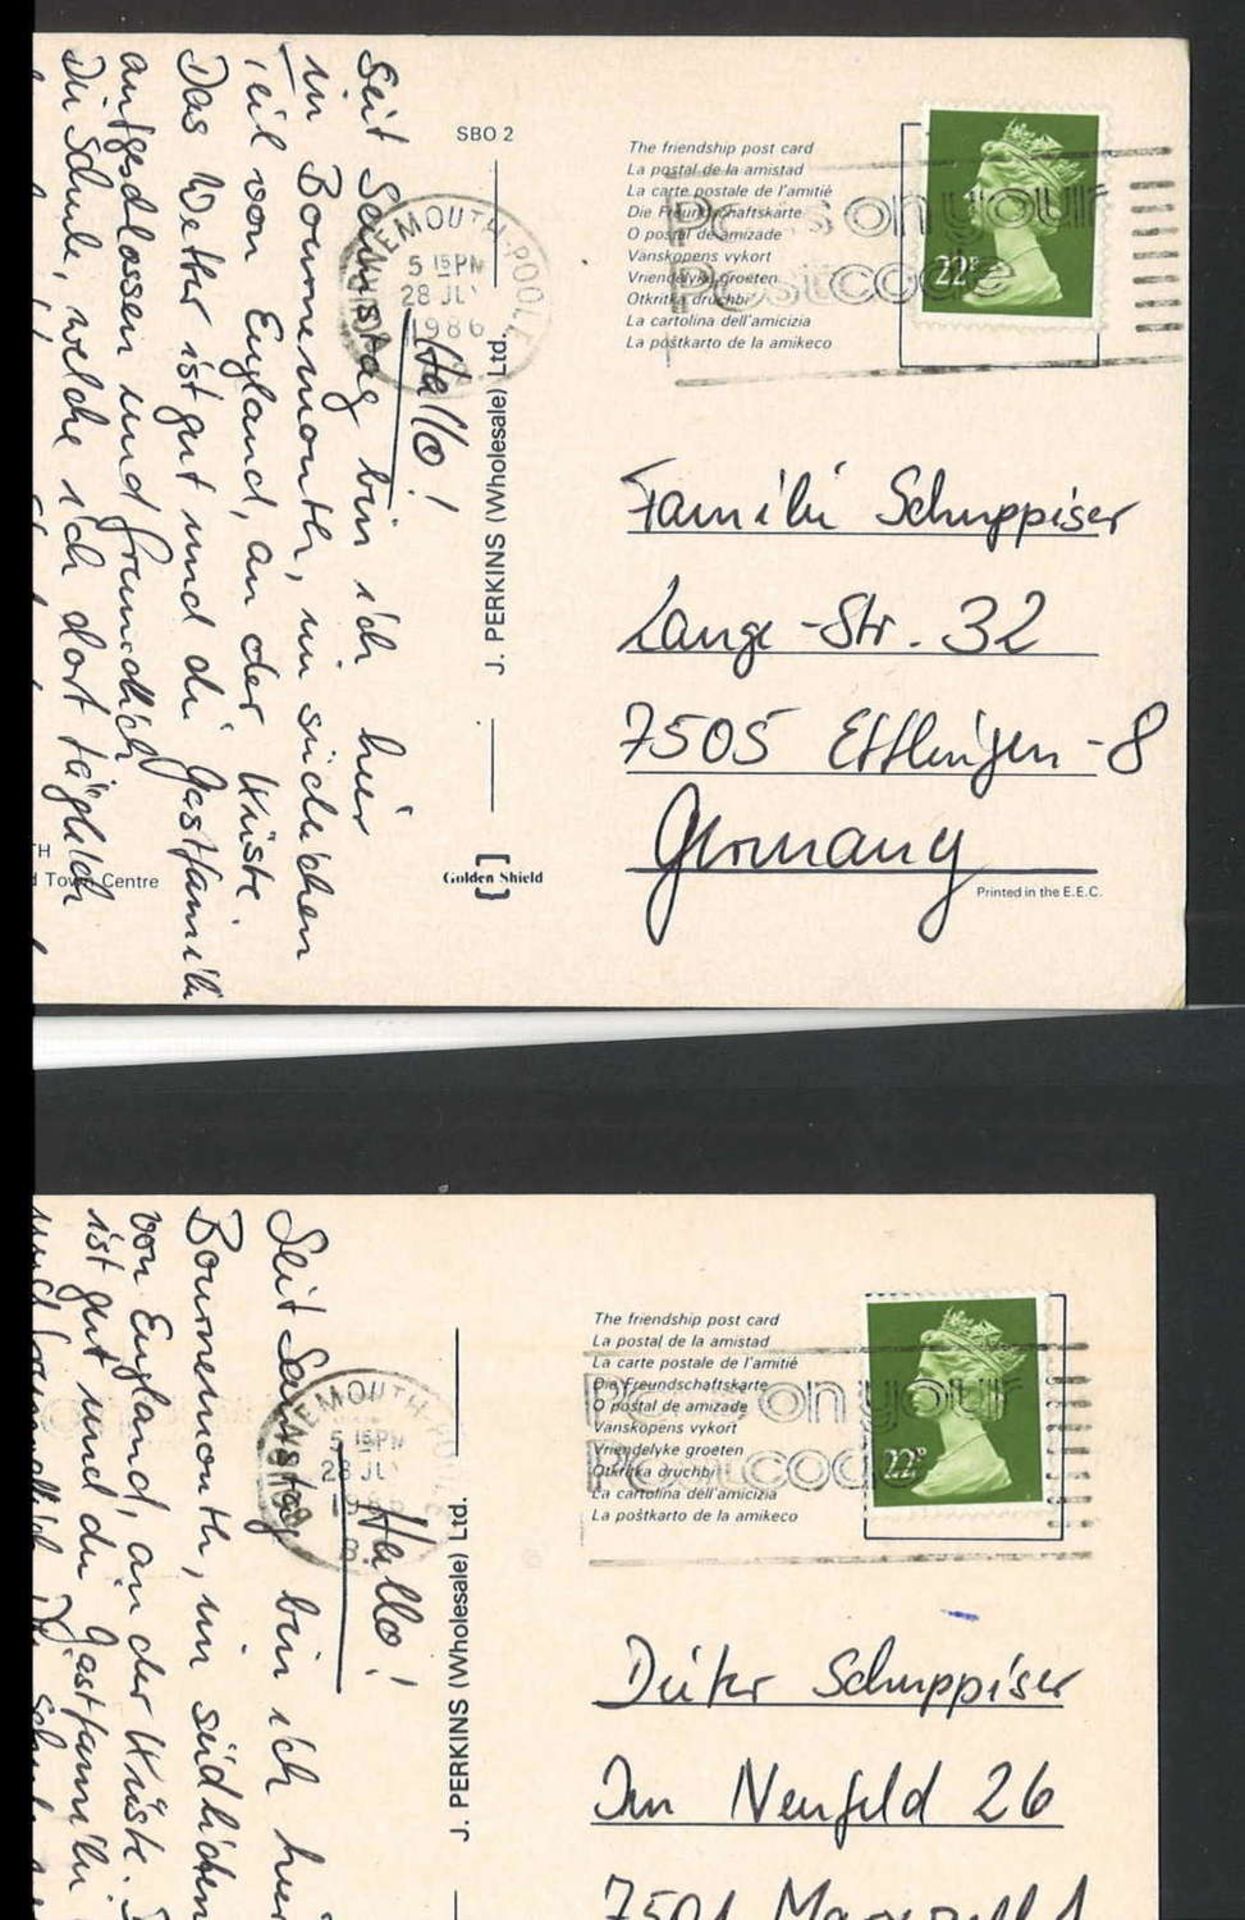 SBO 2
The friendship post card
La postal de la amistad
La carte postale de l'amitié
Die Freundschaftskarte
O postal de amizade
Vanskopens vykort
Vriendelyke groeten
Otkritka druchbi
La cartolina dell'amicizia
La poŝtkarto de la amikeco
Pass on your
Postcode
22P
BOURNEMOUTH-POOLE
5 15 PM
28 JLY
1986
Hallo!
Seit Samstag bin ich hier
in Bournemouth, im südlichen
Teil von England, an der Küste.
Das Wetter ist gut und die Gastfamilie
aufgeschlossen und freundlich
Die Schule, welche ich dort täglich
J. PERKINS (Wholesale) Ltd.
Golden Shield
Familie Schuppiser
Lange-Str. 32
7505 Ettlingen-8
Germany
Printed in the E.E.C.
TH
d Town Centre
The friendship post card
La postal de la amistad
La carte postale de l'amitié
Die Freundschaftskarte
O postal de amizade
Vanskopens vykort
Vriendelyke groeten
Otkritka druchbi
La cartolina dell'amicizia
La poŝtkarto de la amikeco
Pass on your
Postcode
22P
NEMOUTH-POOLE
5 15 PM
28 JLY
1986
Hallo!
Seit Samstag bin ich hier
Bournemouth, im südlichen
von England, an der Küste.
ist gut und die Gastfamilie
und freundlich. Die Schule
J. PERKINS (Wholesale) Ltd.
Dieter Schuppiser
Im Neufeld 26
7501